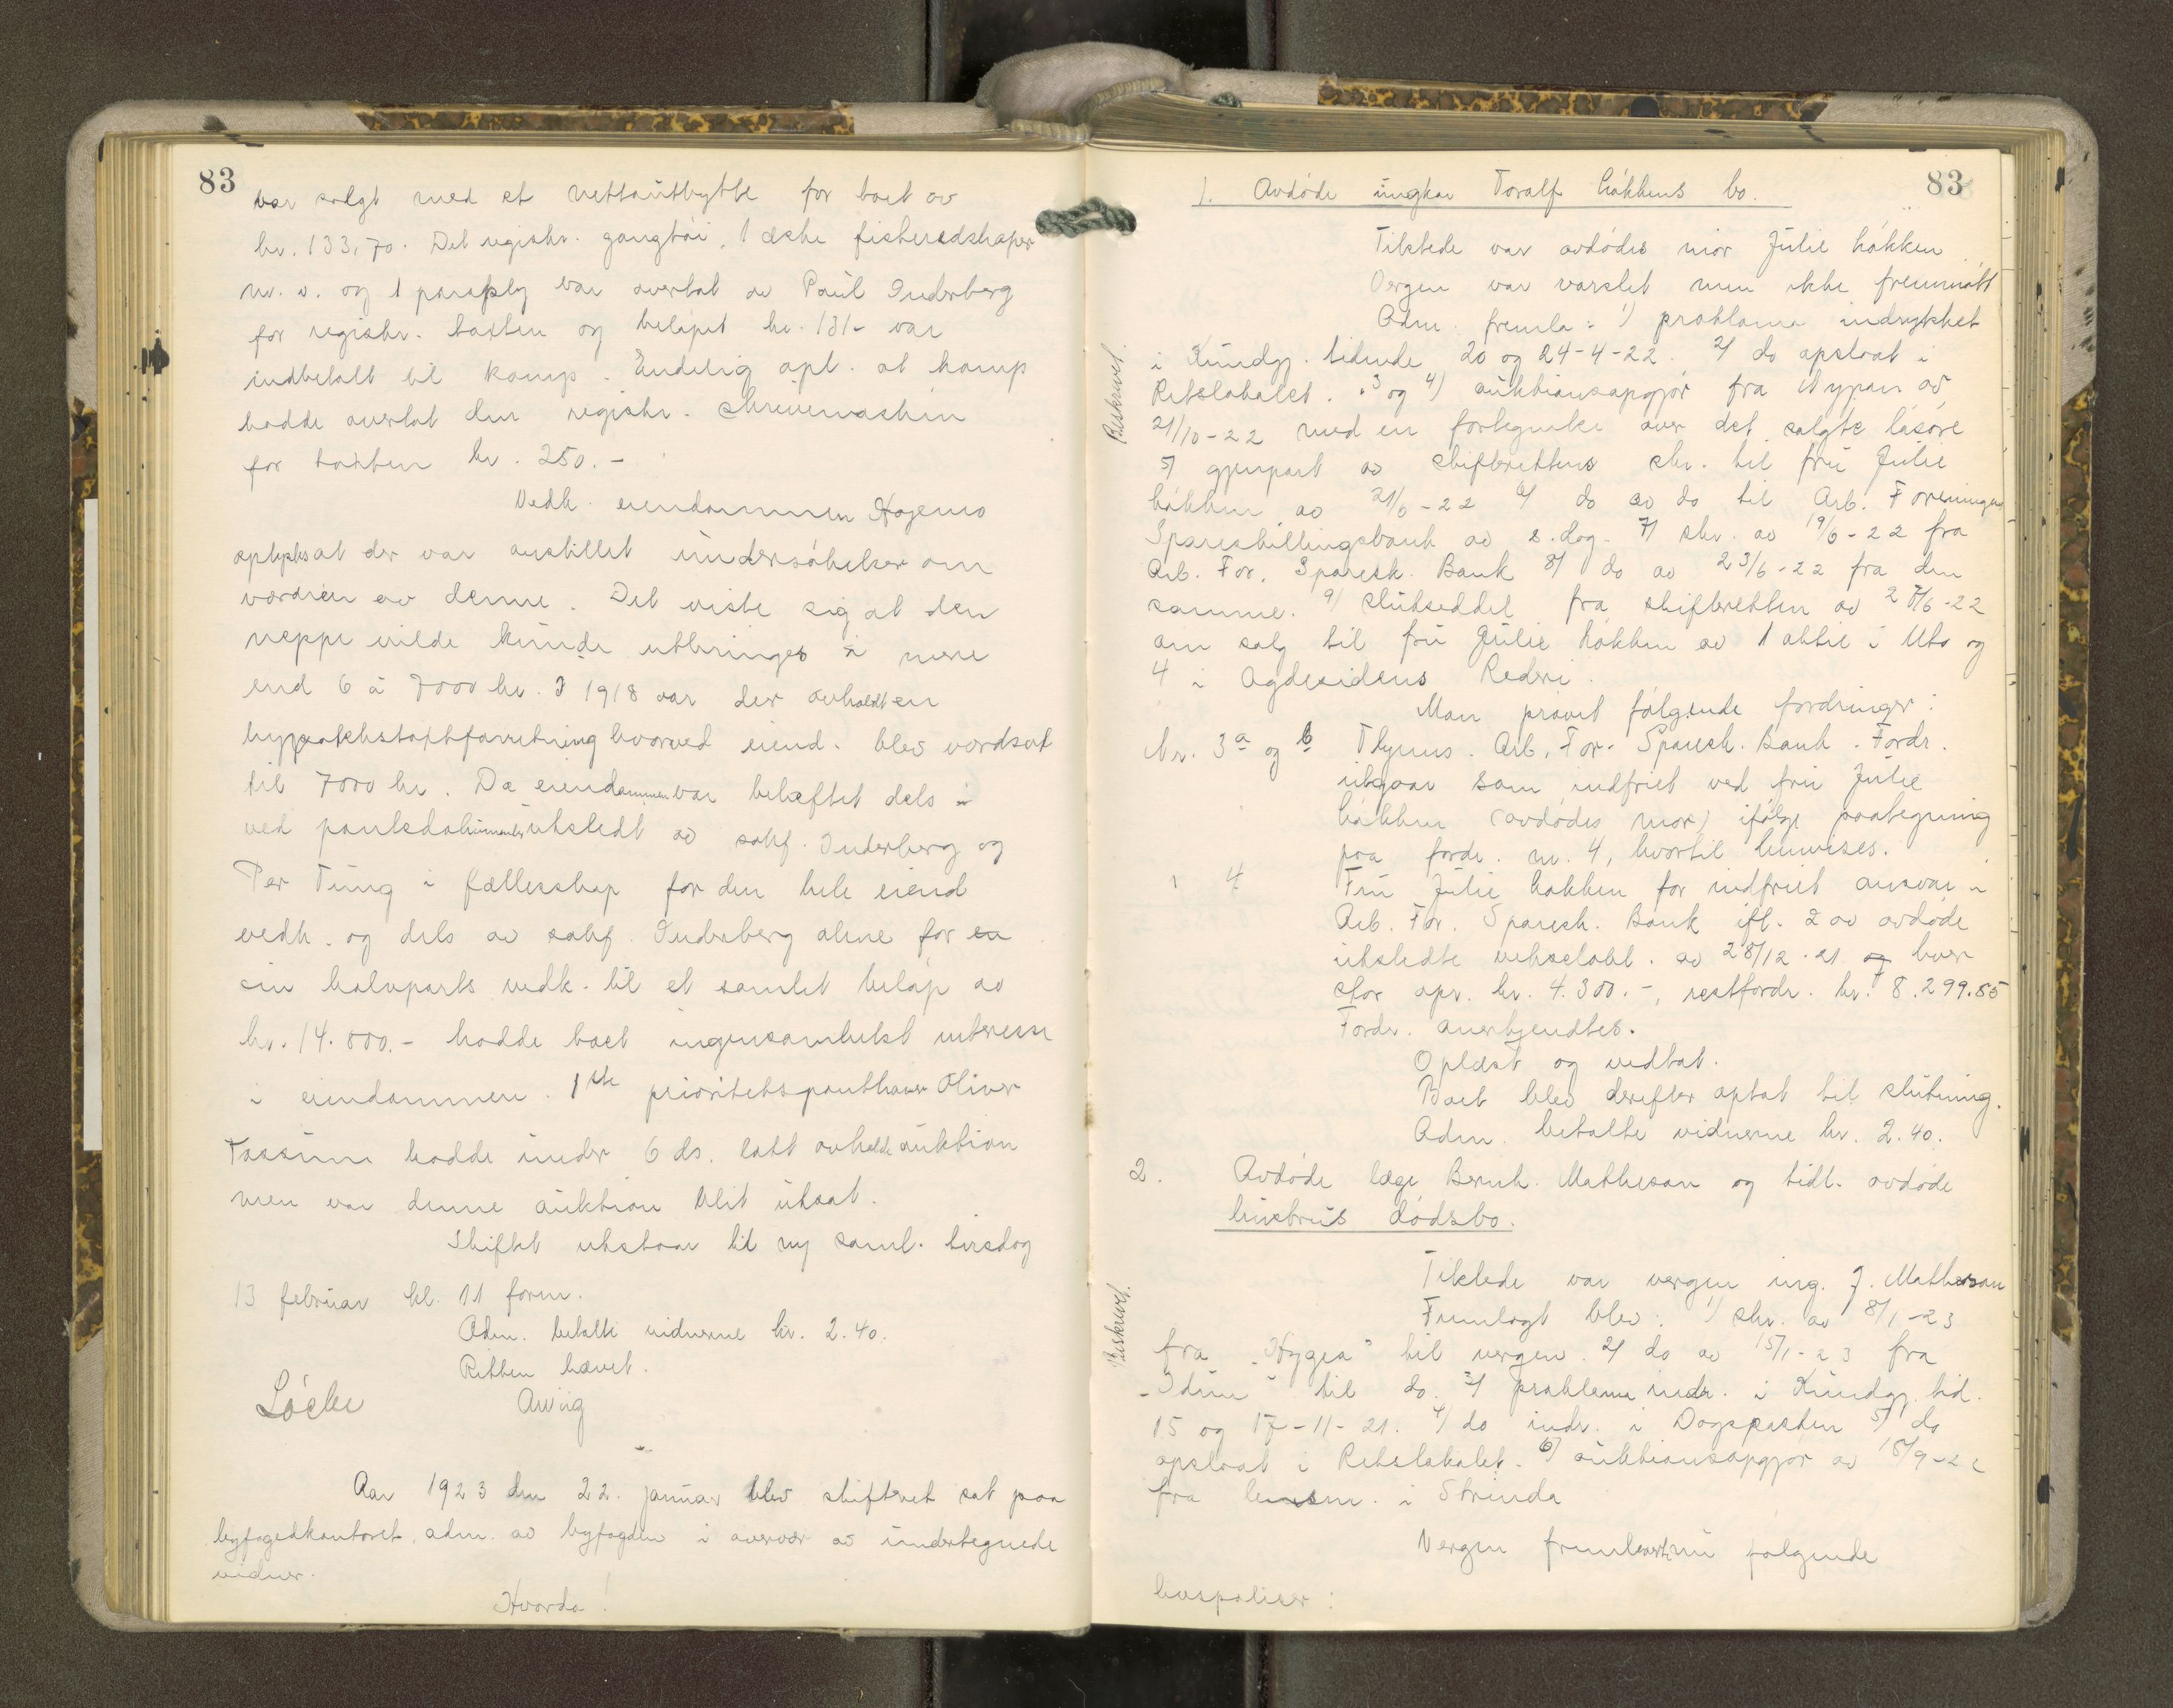 83
var solgt med et nettoutbytte for boet av
kr. 133,70. Det registr. gangtøi, 1 æske fiskeredskaper
m.v. og 1 paraply var overtat av Paul Inderberg
for registr. taksten og beløpet kr. 131- var
indbetalt til komp. Endelig opl. at komp
hadde overtat den registr. skrivemaskin
for taksten kr. 250.-
Vedk. eiendommen Hagemo
oplystes at der var anstillet undersøkelser om
værdien av denne. Det viste sig at den
neppe vilde kunde utbringes i mere
end 6 a 7000 kr. I 1918 var der avholdt en
hypotekstakstforretning hvorved eiend. blev værdsat
til 7000 kr. Da eiendommen var beheftet dels i
ved pantedokumenter utstedt av sakf. Inderberg og
Per Tung i fællesskap for den hele eiend
vedk. og dels av sakf. Inderberg alene for en
sin halvparts vedk. til et samlet beløp av
kr. 14.000.- hadde boet ingensomhelst interesse
i eiendommen. 1ste prioritetspanthaver Oliver
Fossum hadde under 6 ds. latt avholde auktion
men var denne auktion blit utsat.
Skiftet utstaar til ny saml. tirsdag
13 februar kl. 11 form.
Adm. betalte vidnerne kr. 2.40.
Retten hævet.
Løcke Auvig
Aar 1923 den 22. januar blev skifteret sat paa
byfogedkontoret, adm. av byfogden i overvær av undertegnede
vidner.
Hvorda!
83
1. Avdøde ungkar Toralf Løkkens bo.
Tilstede var avdødes mor Julie Løkken
Vergen var varslet men ikke fremmøtt
Adm. fremla: 1) proklama indrykket
Beskrevet.
i Kundgj. tidende 20 og 24-4-22. 2) do opslaat i
Retslokalet. 3 og 4) auktionsopgjør fra Nypan av
21/10-22 med en fortegnelse over det solgte løsøre
5) gjenpart av skifterettens skr. til fru Julie
Løkken av 21/6-22 6) do av do til Arb. Foreningens
Spareskillingsbank av s. dag. 7) skr. av 19/6-22 fra
Arb. For. Sparesk. Bank 8) do av 23/6-22 fra den
samme. 9) slutseddel fra skifteretten av 27/6-22
om salg til fru Julie Løkken av 1 aktie i Uto og
4 i Agdesidens Rederi.
Man prøvet følgende fordringer:
Nr. 3a og b Thjems. Arb. For. Sparesk. Bank. Fordr.
utgaar som indfriet ved fru Julie
Løkken (avdødes mor) ifølge paategning
paa fordr. nr. 4, hvortil henvises.
" 4 Fru Julie Løkken for indfriet ansvar i
Arb. For. Sparesk. Bank ifl. 2 av avdøde
utstedte vekselobl. av 28/12-21 og hver
stor opr. kr. 4.300.-, restfordr. kr. 8.299.85
Fordr. anerkjendtes.
Oplæst og vedtat.
Boet blev derefter optat til slutning.
Adm. betalte vidnerne kr. 2.40.
2. Avdøde læge Bernh. Matheson og tidl. avdøde
hustrus dødsbo.
Tilstede var vergen ing. J. Matheson
Beskrevet.
Fremlagt blev: 1) skr. av 8/1-23
fra "Hygea" til vergen. 2) do av 15/1-23 fra
"Idun" til do. 3) proklama indr. i Kundgj. tid.
15 og 17-11-21. 4) do indr. i Dagsposten 5) do
opslaat i Retslokalet. 6) auktionsopgjør av 18/9-22
fra lensm. i Strinda
Vergen fremlevert nu følgende
livspoliser: